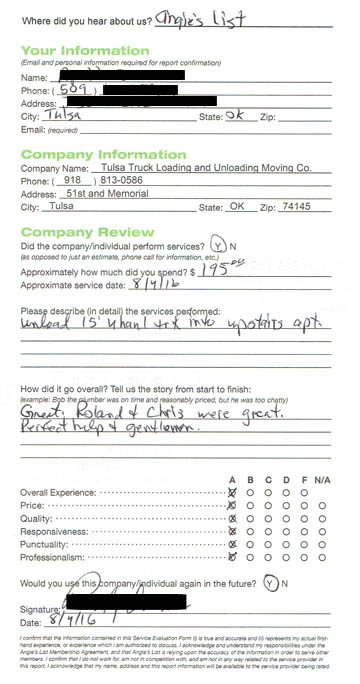 Where did you hear about us? Angie's List
Your Information
(Email and personal information required for report confirmation)
Name:
Phone: (509)
Address:
City: Tulsa State: OK Zip:
Email: (required)
Company Information
Company Name: Tulsa Truck Loading and Unloading Moving Co.
Phone: ( 918 ) 813-0586
Address: 51st and Memorial
City: Tulsa State: OK Zip: 74145
Company Review
Did the company/individual perform services? Y N
(as opposed to just an estimate, phone call for information, etc.)
Approximately how much did you spend? $ 195.00
Approximate service date: 8/4/16
Please describe (in detail) the services performed:
Unload 15' Uhaul trk into upstairs apt.
How did it go overall? Tell us the story from start to finish:
(example: Bob the plumber was on time and reasonably priced, but he was too chatty)
Great. Roland & Chris were great.
Perfect help & gentlemen.
A B C D F N/A
Overall Experience:
Price:
Quality:
Responsiveness:
Punctuality:
Professionalism:
Would you use this company/individual again in the future? Y N
Signature:
Date: 8/4/16
I confirm that the information contained in this Service Evaluation Form (i) is true and accurate and (ii) represents my actual first-
hand experience, or experience which I am authorized to discuss. I acknowledge and understand my responsibilities under the
Angie's List Membership Agreement, and that Angie's List is relying upon the accuracy of my information in order to serve other
members. I confirm that I do not work for, am not in competition with, and am not in any way related to the service provider in
this report. I acknowledge that my name, address and this report information will be available to the service provider being rated.